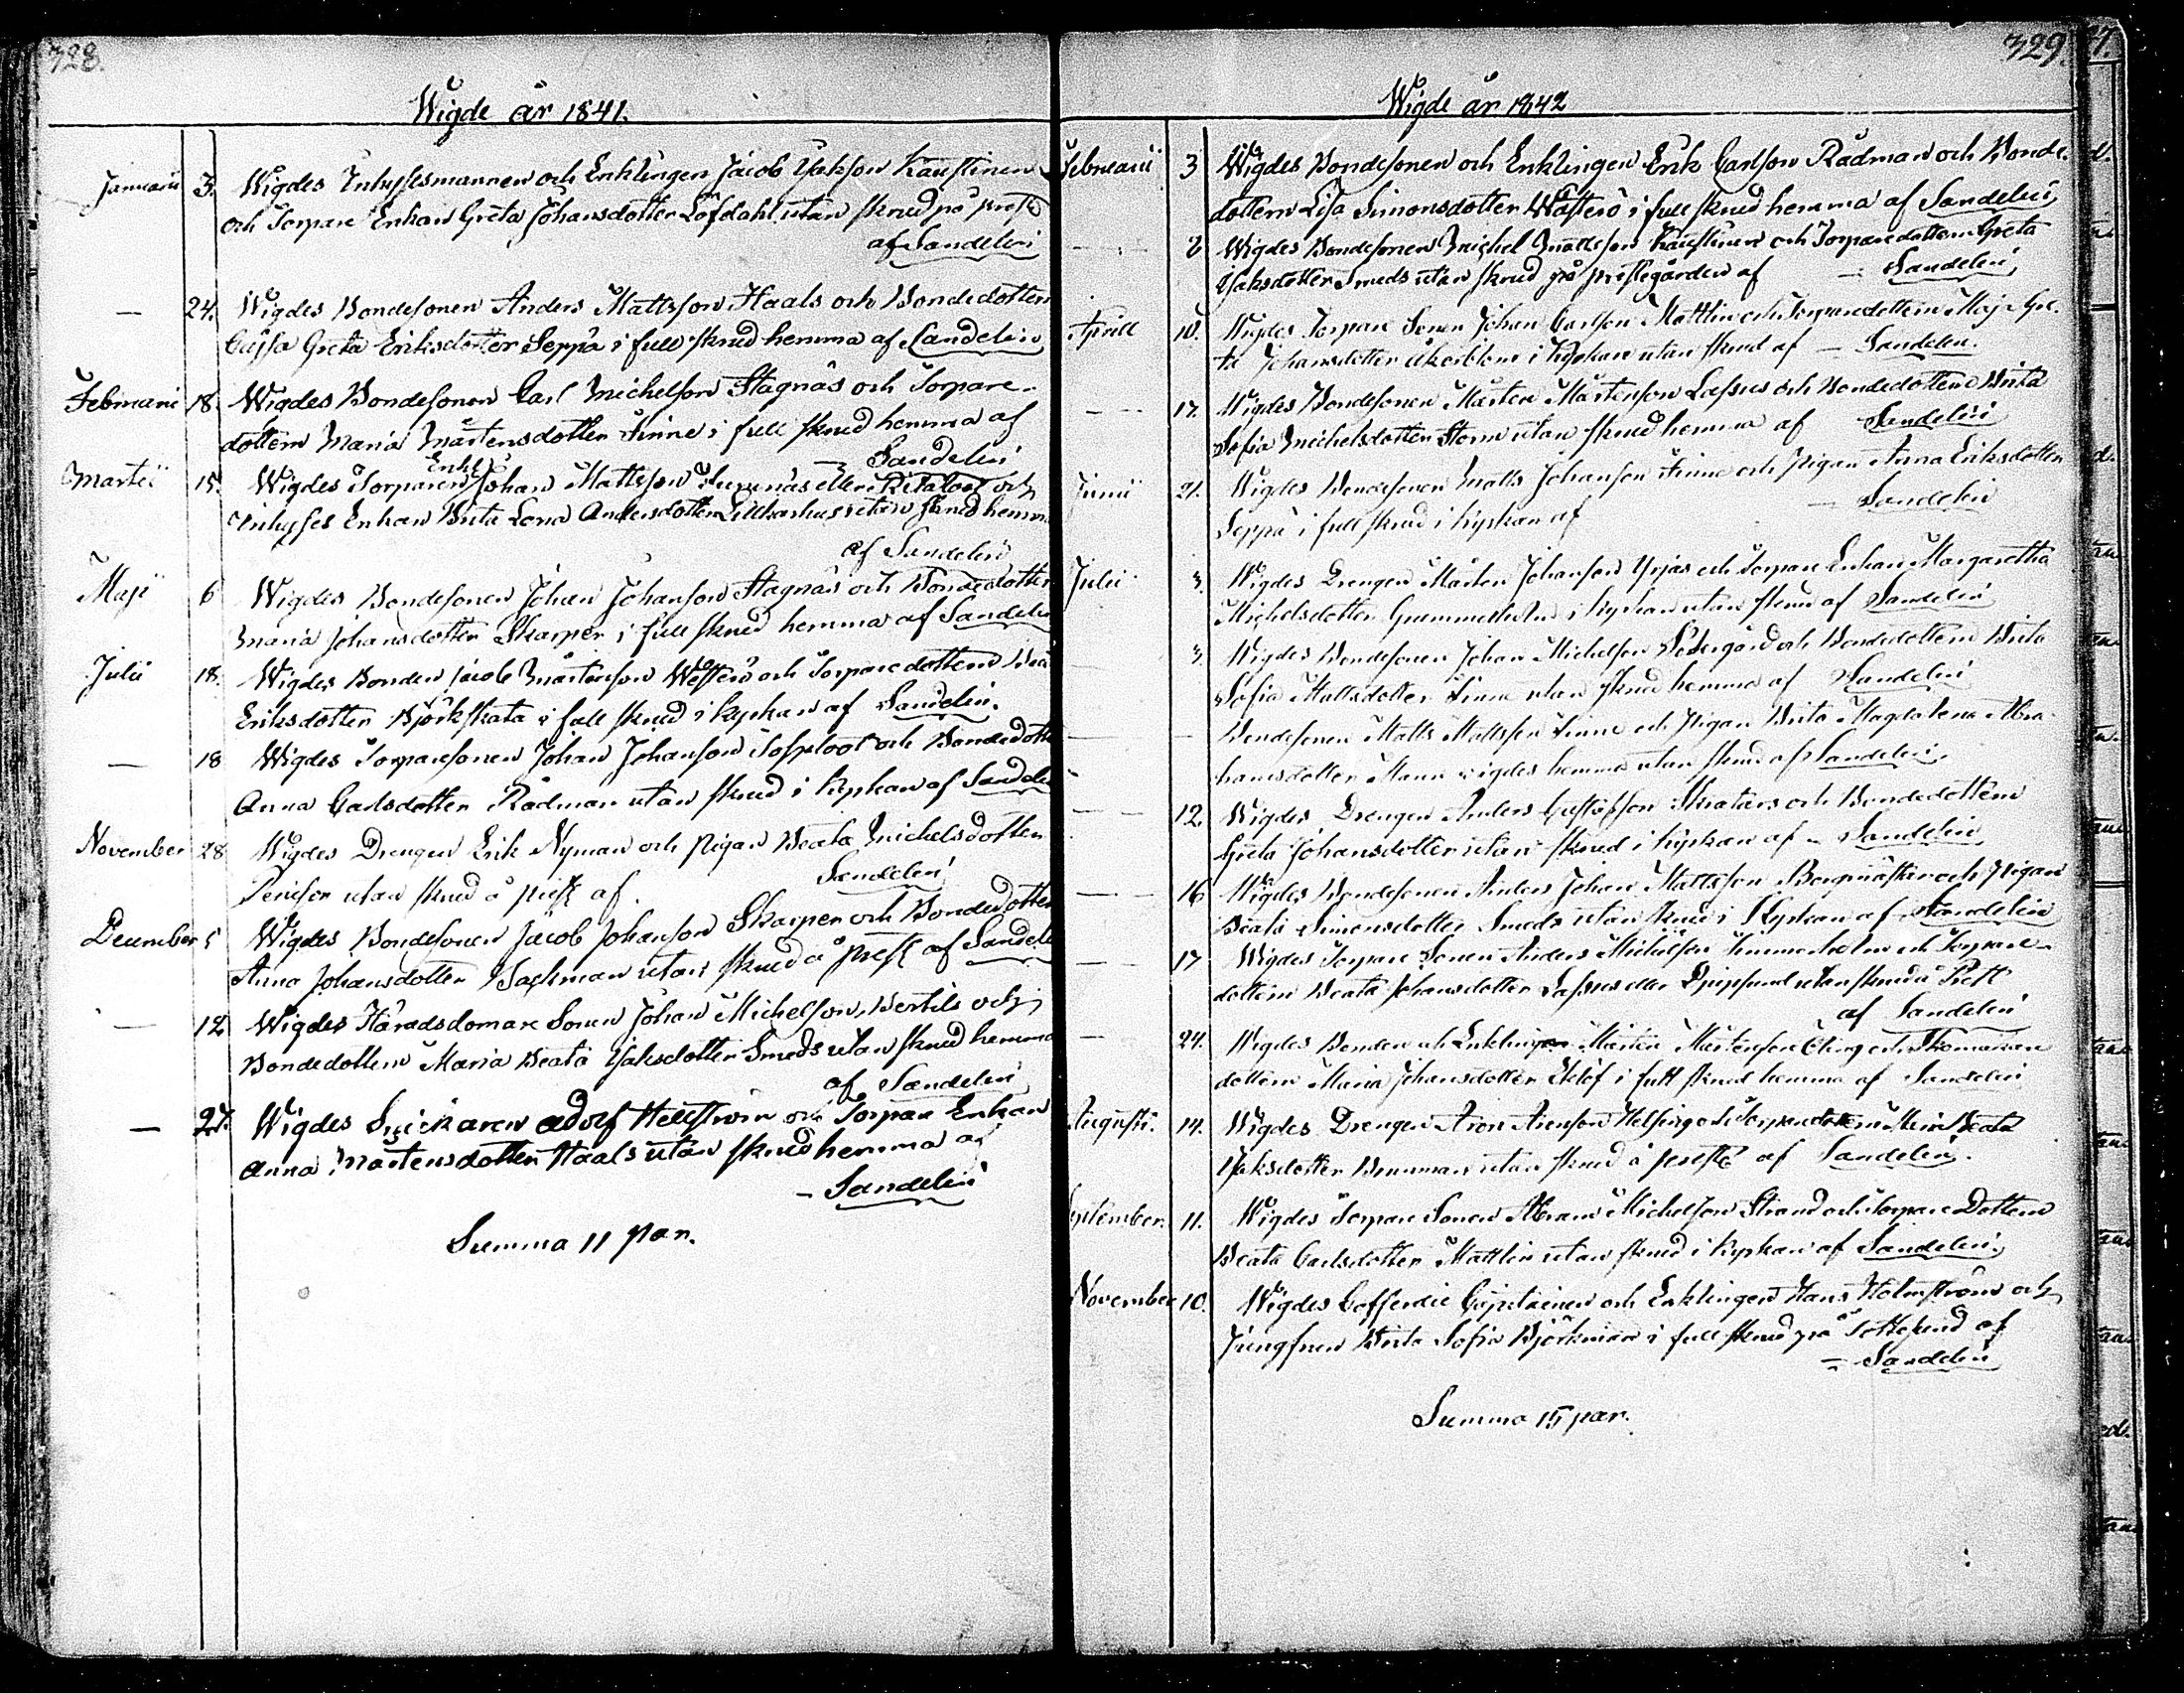 328.
Wigde år 1841.
Januarii 3. Wigdes Inhysesmannen och Enklingen Jacob Jakson Kaustinen
och Torpare Enkan Greta Johansdotter Löfdahl utan skrud på prestg
af Sandelin
— 24. Wigdes Bondesonen Anders Mattsson Haals och Bondedottern
Cajsa Greta Eriksdotter Seppä i full skrud hemma af Sandelin
Februarii 18. Wigdes Bondesonen Carl Michelson Stagnäs och Torpare-
dottern Maria Mårtensdotter Finne i full skrud hemma af
Sandelin
Martii 15. Wigdes Torparen Enkl Johan Mattsson eller och
Inhyses Enkan Brita Lena Andersdotter utan skrud hemma
af Sandelin
Maji 6 Wigdes Bondesonen Johan Johanson Stagnäs och Bondedotter
Maria Johansdotter Skarper i full skrud hemma af Sandelin
Julii 18. Wigdes Bonden Jacob Mårtenson Westerö och Torparedottern
Eriksdotter Björkskata i full skrud i kyrkan af Sandelin.
— 18 Wigdes Torparesonen Johan Johanson och Bondedott
Anna Carlsdotter Rådman utan skrud i kyrkan af Sandeli
November 28 Wigdes Drengen Erik Nyman och Pigan Beata Michelsdotter
utan skrud å prest af. Sandelin
December 5 Wigdes Bondesonen Jacob Johanson Skarper och Bondedotter
Anna Johansdotter Backman utan skrud å prest af Sandeli
— 12 Wigdes Häradsdomare Sonen Johan Michelson Bertils och
Bondedottern Maria Beata Jaksdotter Smeds utan skrud hemma
af Sandelin
— 27. Wigdes Snickaren Adolf Hellström och Torpare Enkan
Anna Mårtensdotter Haals utan skrud hemma af
— Sandelin
Summa 11 par.
329.
Wigde år 1842
Februarii 3 Wigdes Bondesonen och Enklingen Erik Carlson Rådman och Bonde-
dottern Lisa Simonsdotter Wästerö i full skrud hemma af Sandelin
Wigdes Bondesonen Michel Mattsson Kaustinen och Torparedottern Greta
Jaksdotter Smeds utan skrud på prestegården af — Sandelin
Aprill 10. Wigdes Torpare Sonen Johan Carlson Mattlin och Torparedottern Maja Gre-
ta Johansdotter Åkerblom i kyrkan utan skrud af — Sandelin.
17. Wigdes Bondesonen Mårten Mårtenson Lassus och Bondedottern Brita
Sofia Michelsdotter Storm utan skrud hemma af Sandelin
Junii 21. Wigdes Bondesonen Matts Johanson Finne och Pigan Anna Eriksdotter
Seppä i full skrud i kyrkan af — Sandelin
Julii 3. Wigdes Drengen Mårten Johanson Yrjas och Torpare Enkan Margaretha
Michelsdotter i kyrkan utan skrud af Sandelin
3. Wigdes Bondesonen Johan Michelson Södergård och Bondedottern Brita
Sofia Mattsdotter Finne utan skrud hemma af Sandelin
— Bondesonen Matts Mattsson Finne och Pigan Brita Magdalena Abra-
hamsdotter Mann wigdes hemma utan skrud af Sandelin.
12. Wigdes Drengen Anders Gustafson och Bondedottern
Greta Johansdotter utan skrud i kyrkan af — Sandelin
16 Wigdes Bondesonen Anders Johan Mattsson Bergmästar och Pigan
Beata Simonsdotter Smeds utan skrud i Kyrkan af Sandelin
17 Wigdes Torpare Sonen Anders Michelson Timmerholm och Torpare-
dottern Beata Johansdotter Lassus eller Djupsund utan skrud å Prest
af Sandelin
24. Wigdes Bonden och Enklingen Mårten Mårtenson och
dottern Maria Johansdotter Eklöf i full skrud hemma af Sandelin
Augusti. 14. Wigdes Drengen Aron Aronson Helsing och Torparedottern Beata
Jaksdotter utan skrud å prestg af Sandelin.
September 11. Wigdes Torpare Sonen Abram Michelson Strand och Torpare Dottern
Beata Carlsdotter Mattlin utan skrud i kyrkan af Sandelin.
November 10. Wigdes Cofferdie Capitainen och Enklingen Hans Holmström och
Jungfrun Brita Sofia Björkman i full skrud på af
— Sandelin
Summa 15 par.